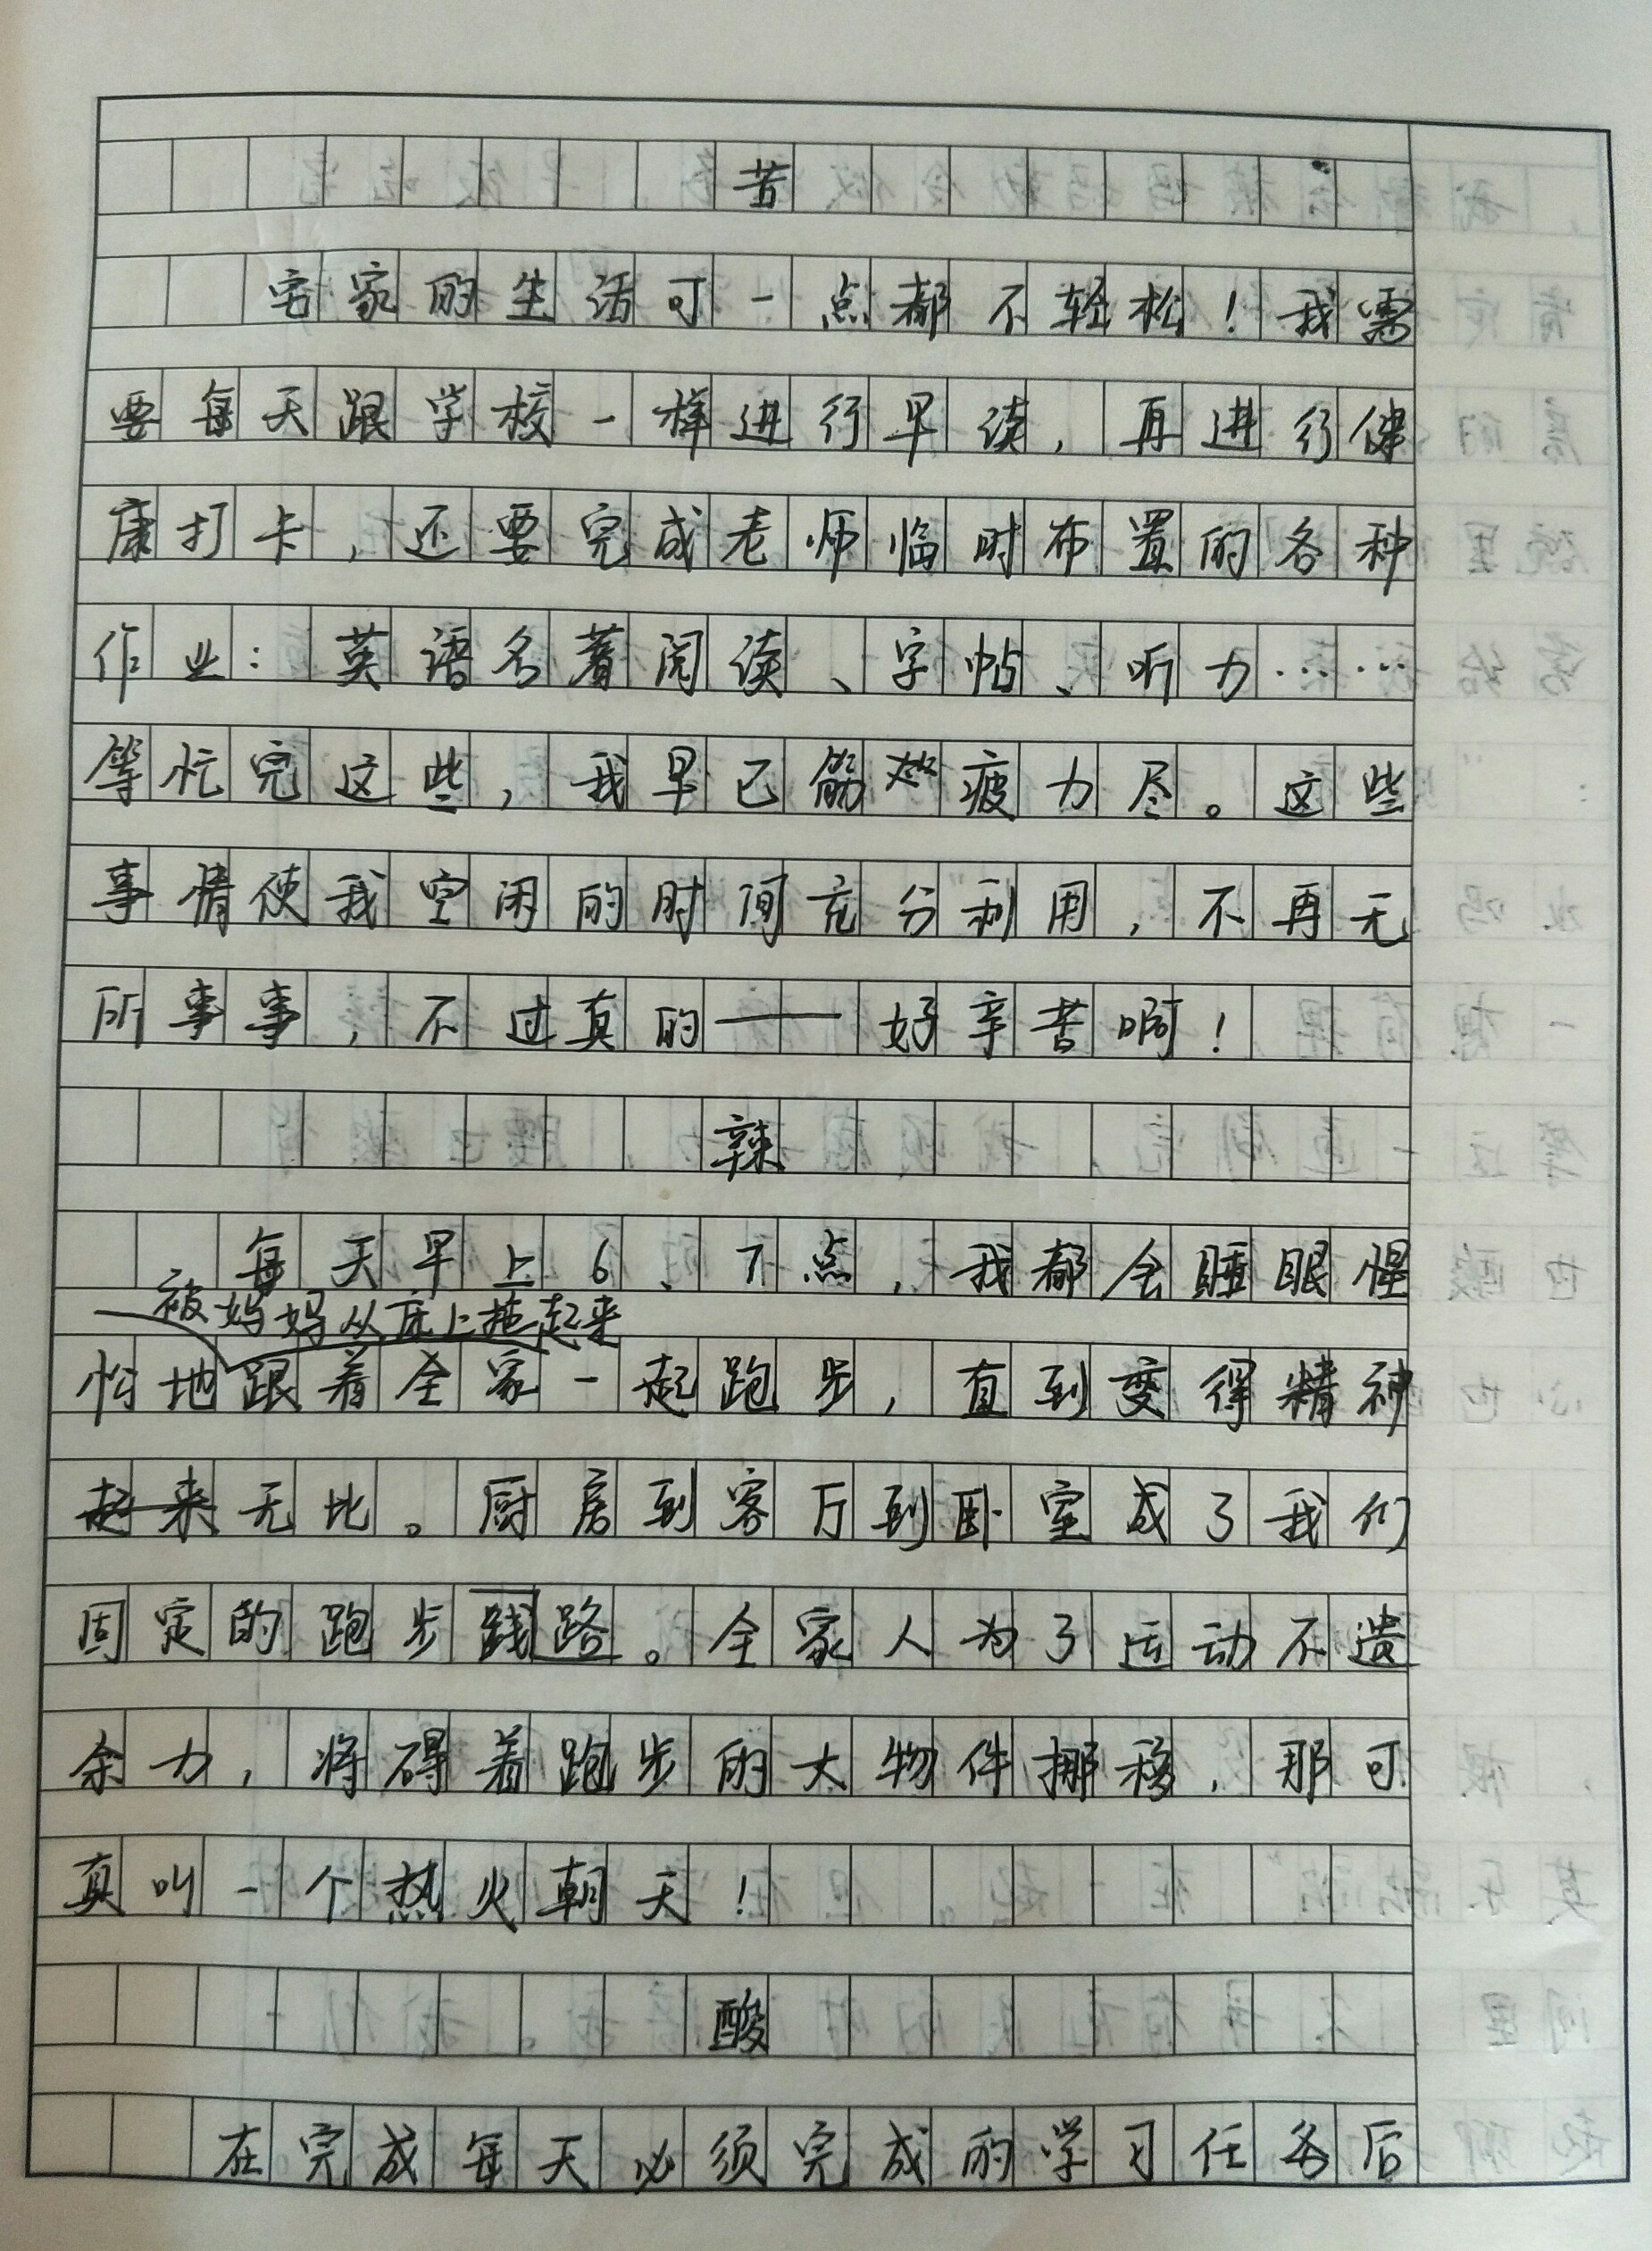 苦
宅家的生活可一点都不轻松！我需
要每天跟学校一样进行早读，再进行健
康打卡，还要完成老师临时布置的各种
作业：英语名著阅读、字帖、听力……
等忙完这些，我早已筋疲力尽。这些
事情使我空闲的时间充分利用，不再无
所事事，不过真的——好辛苦啊！
辣
每天早上6、7点，我都会睡眼惺
被妈妈从床上拖起来
忪地跟着全家一起跑步，直到变得精神
无比。厨房到客厅到卧室成了我们
固定的跑步路。全家人为了运动不遗
余力，将碍着跑步的大物件挪移，那可
真叫一个热火朝天！
酸
在完成每天必须完成的学习任务后